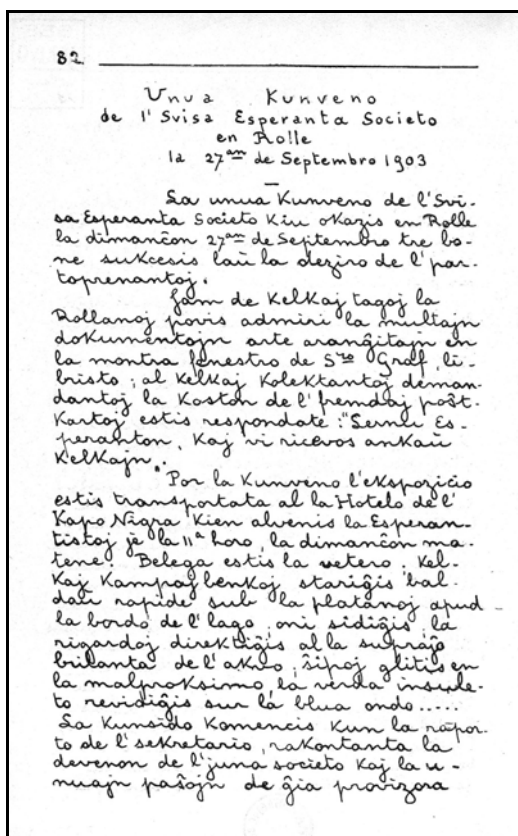 82
Unua Kunveno
de l' Svisa Esperanta Societo
en Rolle
la 27an de Septembro 1903
La unua Kunveno de l' Svi-
sa Esperanta Societo kiu okazis en Rolle
la dimanĉon 27an de Septembro tre bo-
ne sukcesis laŭ la deziro de l' par-
toprenantoj.
Jam de kelkaj tagoj la
Rollanoj povis admiri la multajn
dokumentojn arte aranĝitajn en
la montra fenestro de Sro Graf, li-
bristo; al kelkaj kolektantoj deman-
dantoj la koston de l' fremdaj poŝt-
kartoj estis respondate: "Lernu Es-
peranton, kaj vi ricevos ankaŭ
kelkajn."
Por la Kunveno l'ekspozicio
estis transportata al la Hotelo de l'
Kapo Nigra kien alvenis la Esperan-
tistoj je la 11a horo, la dimanĉon ma-
tene. Belega estis la vetero. Kel-
kaj kampaj benkoj stariĝis bal-
daŭ rapide sub la platanoj apud
la bordo de l'lago, oni sidiĝis, la
rigardoj direktiĝis al la supraĵo
brilanta de l'akvo, ŝipoj glitis en
la malproksimo, la verda insule-
to revidiĝis sur la blua ondo.....
La Kunsido komencis kun la rapor-
to de l' sekretario, rakontanta la
devenon de l'juna societo kaj la u-
nuajn paŝojn de ĝia provizora